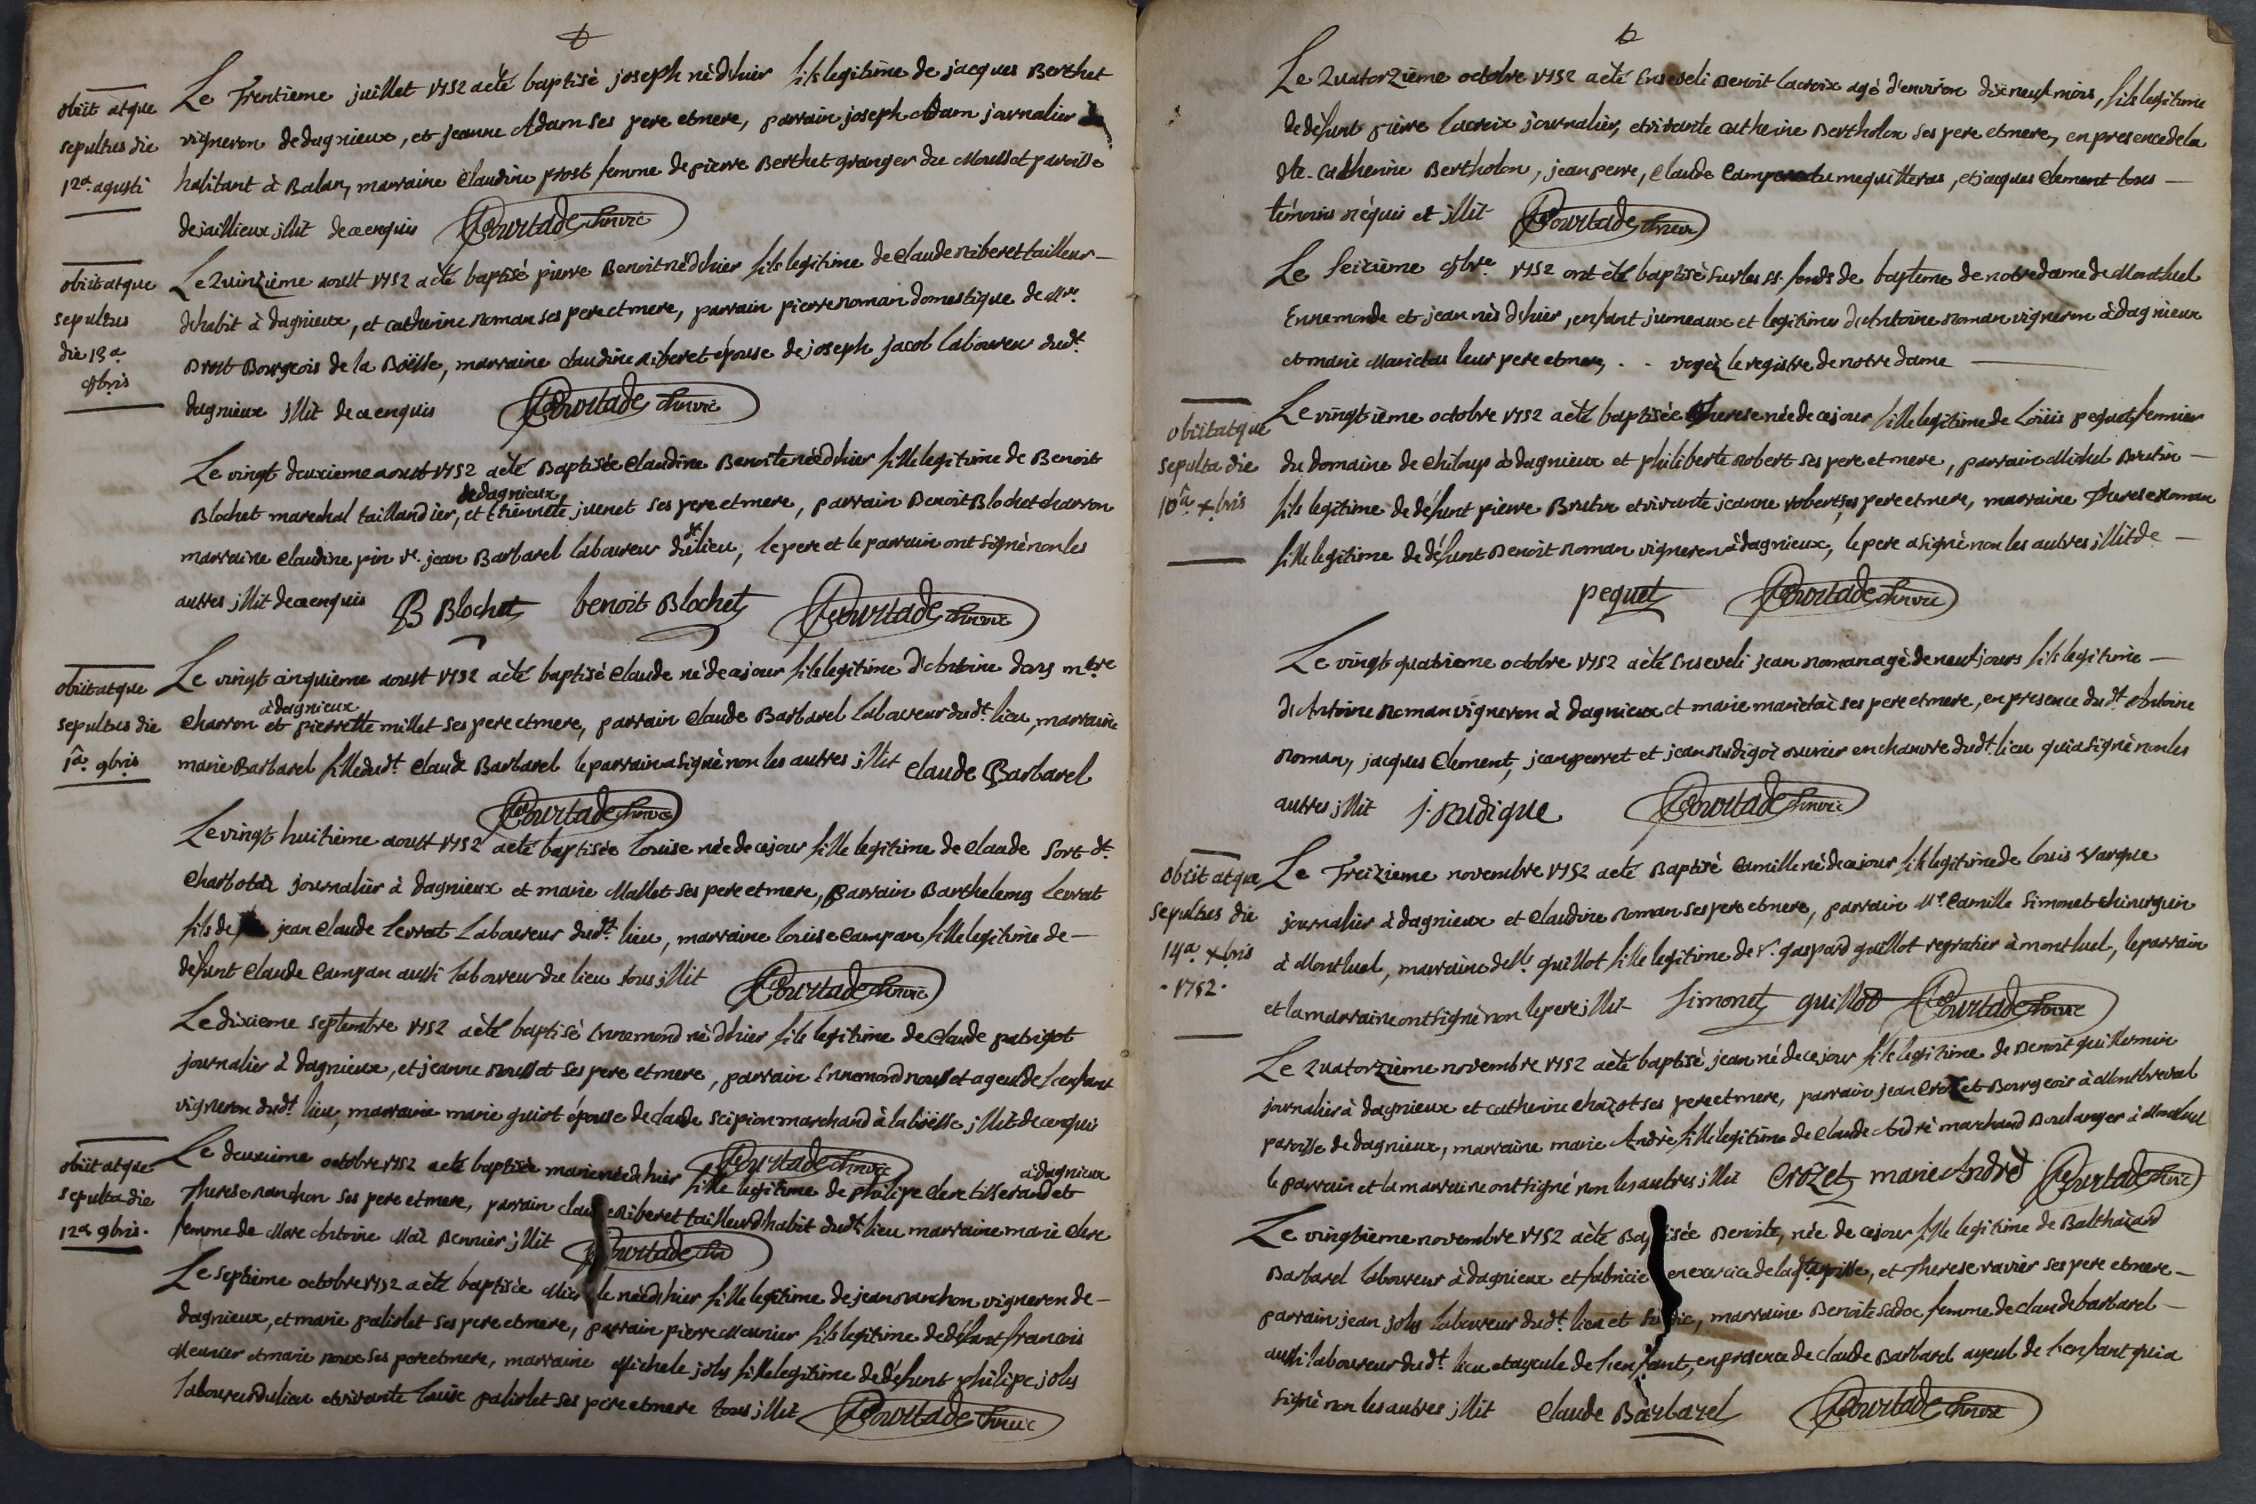 Le Trentieme juillet 1752 a été baptisé joseph né d'hier fils legitime de jacques Berthet
obiit atque
sepultus die
12a. agusti
vigneron de dagnieux, et jeanne Adam ses pere et mere, parrain joseph Adam journalier
habitant à Balan, marraine Claudine prost femme de pierre Berthet granger du Mollard paroisse
de jaillieux illit de ce enquis Courtade
Le Quinzieme aoust 1752 a été baptisé pierre Benoit né d'hier fils legitime de Claude Riberet tailleur
obiit atque
sepultus
die 13a.
9bris
d'habit à dagnieux, et catherine Roman ses pere et mere, parrain pierre Roman domestique de Mr.
Prost Bourgeois de la Boisse, marraine claudine Riberet épouse de joseph jacob laboureur dudt.
dagnieux illit de ce enquis Courtade
Le vingt deuxieme aoust 1752 a été Baptisée Claudine Benoite née d'hier fille legitime de Benoit
de dagnieux
Blochet marechal taillandier, et Etiennette juenet ses pere et mere, parrain Benoit Blochet charron
marraine Claudine pin ve. jean Barbarel laboureur dudt. lieu, le pere et le parrain ont signé non les
autres illit de ce enquis B Blochet benoit Blochet Courtade
Le vingt cinquieme aoust 1752 a été baptisé Claude né de ce jour fils legitime d'Antoine dars mtre
obiit atque
sepultus die
1a. 9bris
à dagnieux
charron et pierrette millet ses pere et mere, parrain Claude Barbarel Laboureur dudt. lieu, marraine
marie Barbarel fille dudt. Claude Barbarel le parrain a signé non les autres illit Claude Barbarel
Courtade
Le vingt huitieme aoust 1752 a été baptisée Louise née de ce jour fille legitime de Claude Sort dt.
charbotaz journalier à dagnieux et marie Mallet ses pere et mere, Parrain Barthelemy Levrat
fils de jean Claude Levrat Laboureur dudt. lieu, marraine louise Campan fille legitime de
defunt Claude Campan aussi laboureur du lieu tous illit Courtade
Le dixieme septembre 1752 a été baptisé Ennemond né d'hier fils legitime de Claude patrigot
journalier à dagnieux, et jeanne Rousset ses pere et mere, parrain Ennemond rousset ageul de l'enfant
vigneron dudt. lieu, marraine marie guiot épouse de claude scipion marchand à la boësse illit de ce enquis
Courtade
Le deuxieme octobre 1752 a été baptisée marie née d'hier fille legitime de philipe Clere tisserand et
à dagnieux
obiit atque
sepulta die
12a. 9bris.
Therese Ranchon ses pere et mere, parrain claude Riberet tailleur d'habit dudt. lieu marraine marie Clere
femme de Marc Antoine Maz Bennier illit Courtade
Le septieme octobre 1752 a été baptisée Michele née d'hier fille legitime de jean Ranchon vigneron de
dagnieux, et marie paliolet ses pere et mere, parrain pierre Meunier fils legitime de défunt françois
Meunier et marie roux ses pere et mere, marraine Michele joly fille legitime de défunt philipe joly
laboureur du lieu et vivante louise paliolet ses pere et mere tous illit Courtade
Le Quatorzieme octobre 1752 a été Enseveli Benoit Lacroix agé d'environ dix neuf mois, fils legitime
de défunt pierre lacroix journalier, et vivante catherine Bertholon ses pere et mere, en presence de la
dte. Catherine Bertholon, jean perre, Claude Campan et jacques Clement tous
témoins réquis et illit Courtade
Le seizième 8bre. 1752 ont été baptisé sur les ss. fonds de baptême de notre dame de Montluel
Ennemonde et jean nés d'hier, enfant jumeaux et legitime d'Antoine Roman vigneron à dagnieux
et marie Marietas leur pere et mere, . . voyez le registre de notre dame
Le vingtième octobre 1752 a été baptisée Therese née de ce jour fille legitime de Loüis pequet fermier
obiit atque
sepulta die
10a. xbris
du domaine de Chiloup à dagnieux et philiberte Robert ses pere et mere, parrain Michel Brutin
fils legitime de défunt pierre Brutin et vivante jeanne robert ses pere et mere, marraine Therese Roman
fille legitime de défunt Benoit Roman vigneron à dagnieux, le pere a signé non les autres illit de
pequet Courtade
Le vingt quatrieme octobre 1752 a été Enseveli jean Roman agé de neuf jours fils legitime
d'Antoine Roman vigneron à dagnieux et marie marietaz ses pere et mere, en presence dudt. Antoine
Roman, jacques Clement, jean perret et jean Rudigoz ouvrier en chanvre dudt. lieu qui a signé non les
autres illit j. Rudigue Courtade
Le Treizieme novembre 1752 a été Baptisé Camille né de ce jour fils legitime de louis Varque
obiit atque
sepultus die
14a. xbris
- 1752 -
journalier à dagnieux et Claudine Roman ses pere et mere, parrain Mr. Camille Simonet chirurgien
à Montluel, marraine delle. guillot fille legitime de sr. gaspard guillot regratier à montluel, le parrain
et la marraine ont signé non le pere illit Simonet guillot Courtade
Le Quatorzième novembre 1752 a été baptisé jean né de ce jour fils legitime de Benoit guillermin
journalier à dagnieux et catherine chazot ses pere et mere, parrain jean Crozet Bourgeois à Montbreval
paroisse de dagnieux, marraine marie André fille legitime de Claude André marchand Boulanger à Montluel
le parrain et la marraine ont signé non les autres illit Crozet marie André Courtade
Le vingtieme novembre 1752 a été Baptisée Benoite, née de ce jour fille legitime de Balthazard
Barbarel laboureur à dagnieux et fabricien en exercice de la dte. paroisse, et Therese ravier ses pere et mere
parrain jean joly laboureur dudt. lieu et sindic, marraine Benoite Sadoc femme de claude barbarel
aussi laboureur dudt. lieu et ayeule de l'enfant, en presence de claude Barbarel ayeul de l'enfant qui a
signé non les autres illit Claude Barbarel Courtade